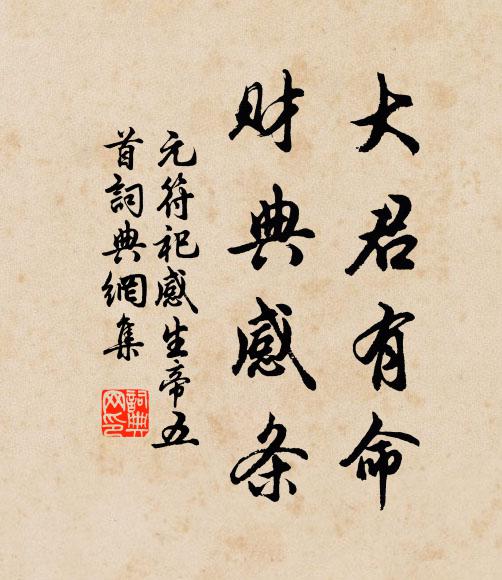 大君有命
财典感条
元符祀感生帝五
首詞典網集
詞典网印